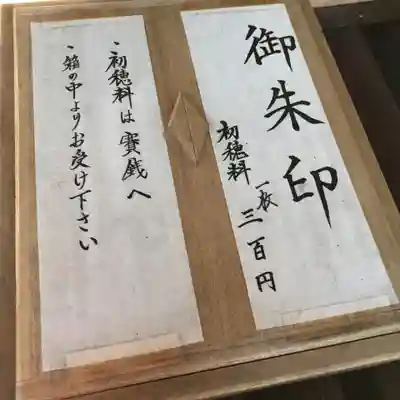 御朱印
初穂料 一枚 三百円
・初穂料は賽銭へ
・箱の中よりお受け下さい